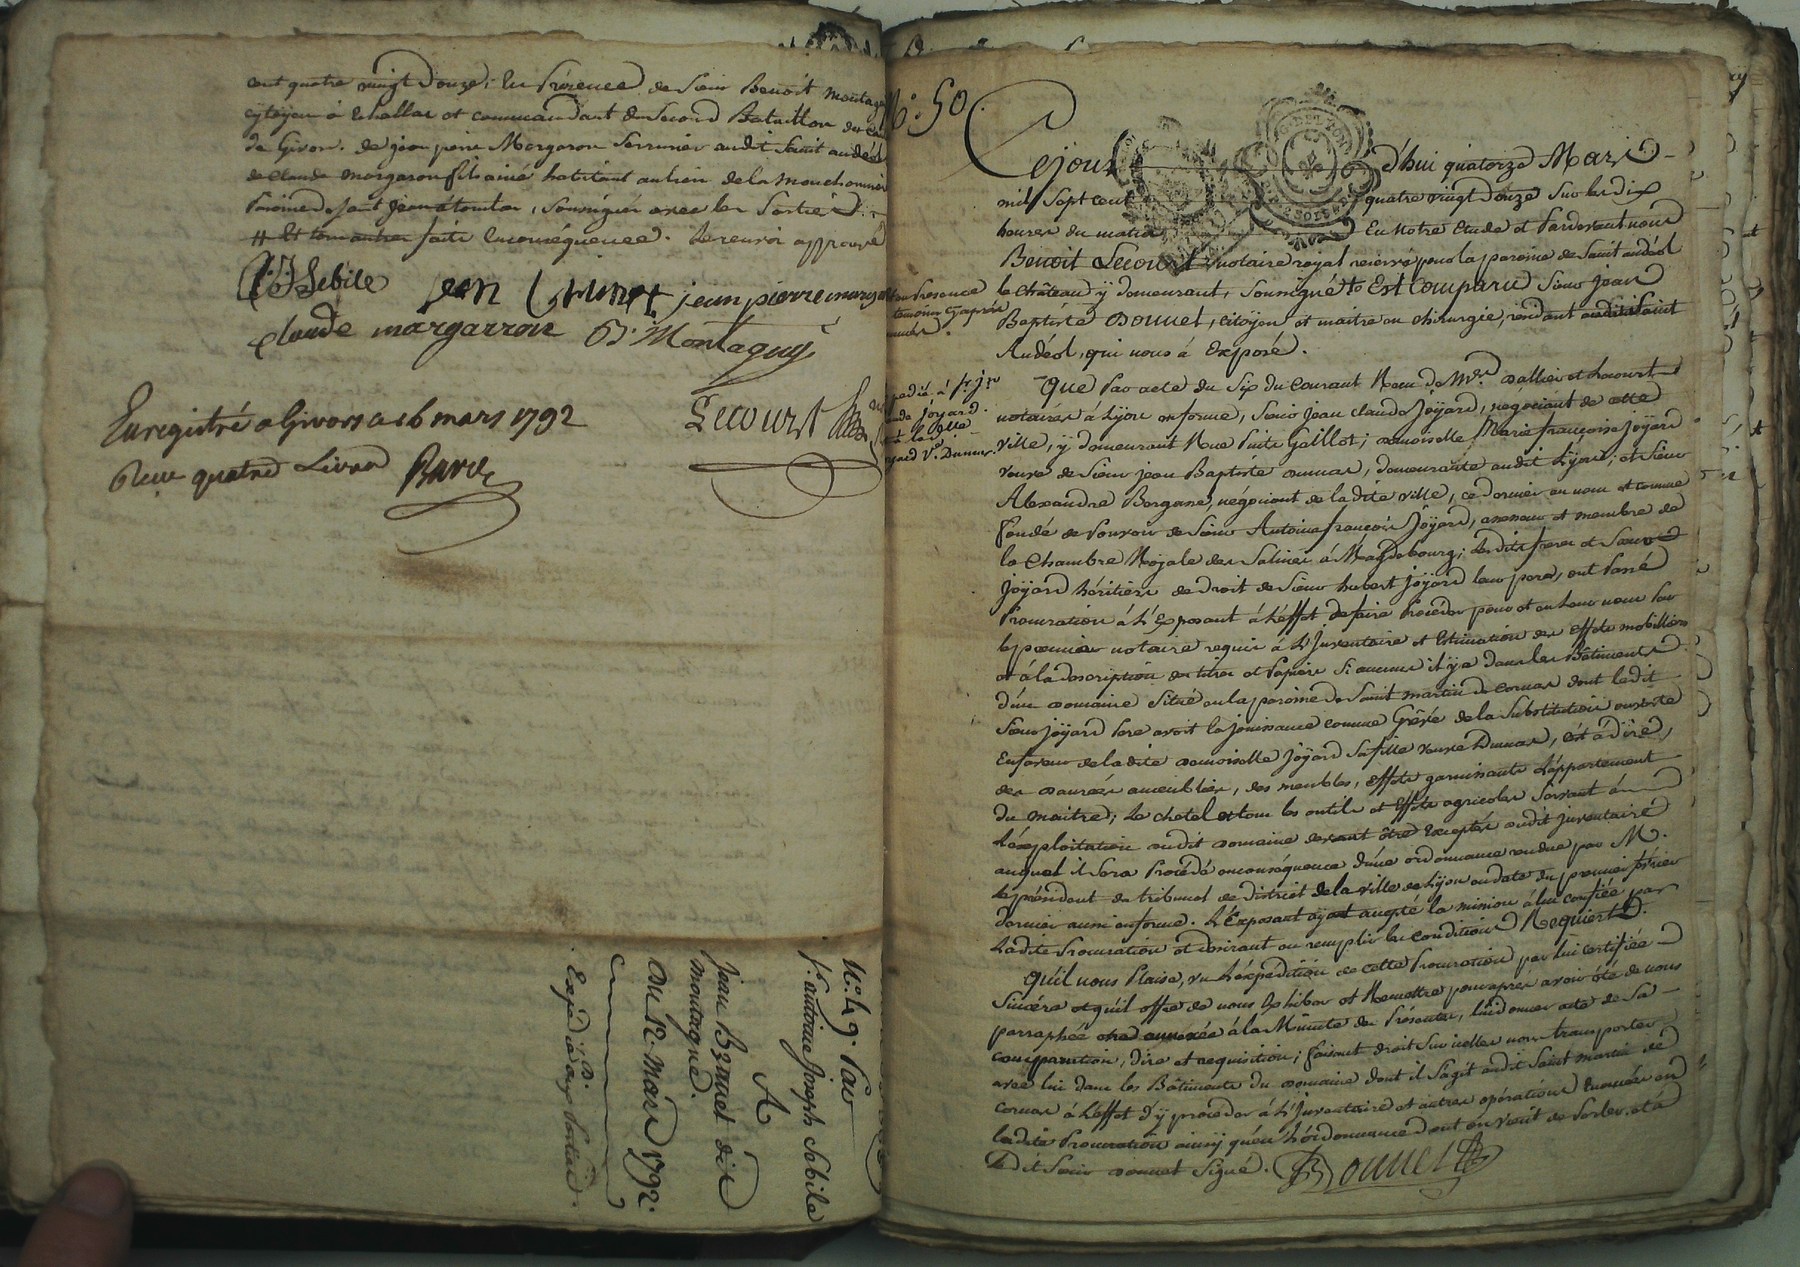 cent quatre vingt Douze; En Présence de Sieur Benoit montag
cytoyen à Echallas et commandant du Second Bataillon du
de Givors. de jean pierre Margaron Serrurier audit Saint andéol
de Claude margaron fils ainé habitant au lieu de la mouchonnier
Paroisse de Saint Jean atoulas, Soussignés avec les Parties.
faite Enconséquence. Le renvoi approuvé
Sebile jean pierre margar
claude margarron B. Montagny
Lecourt
Enregistré a Givors a 16 mars 1792
Reçu quatre Livres
N.o 49. Par
S. antoine Joseph Sebile
A
Jean Brunet dit
montagne.
Du 12. Mars 1792.
Expédié aux Parties.
N.o 50
Cejourd'hui quatorze Mars
mil Sept cent quatre vingt Douze Sur les dix
heures du matin En notre Etude et Pardevant nous
Benoit Lecourt notaire royal reservé pour la paroisse de Saint andéol
le Château y demeurant, Soussigné Est Comparu Sieur Jean
Baptiste Donnet, citoyen et maitre en chirurgie, résidant audit Saint
Andéol, qui nous à Exposé.
en Présence
temoins cy après
Que Par acte du Six du Courant Reçu de Mes. Dallier et Lecourt
notaires a Lyon en forme, Sieur Jean Claude Joyard, négociant de cette
ville, y demeurant Rue Puits Gaillot; demoiselle Marie françoise Joyard
veuve de Sieur jean Baptiste Dumas, demeurante audit Lyon; et Sieur
Alexandre Bergasse, négociant de la dite ville, ce dernier au nom et comme
fondé de Pouvoir de Sieur Antoine françois Joyard, assesseur et membre de
la Chambre Royale des Salines à Magdebourg; lesdits freres et Soeur
Joyard héritiers de droit de Sieur hubert Joyard leur pere, ont Passé
Procuration à L'Exposant à L'effet de faire Procéder pour et en leur nom Par
le premier notaire requis à L'Inventaire et Estimation des effets mobiliers
et à la description des titres et Papiers Si aucuns il y a dans les Bâtiments
d'un domaine Situé en la paroisse de Saint martin de cornas dont ledit
Sieur joyard Pere avoit la jouissance comme Grévé de la Substitution ouverte
En faveur de la dite demoiselle Joyard Sa fille veuve Dumas, c'est à dire,
des danrées ameublies, des meubles, effets garnissants L'appartement
du maitre; Le chetel et tous les outils et effets agricoles Servant à
L'exploitation dudit domaine devant être Exceptés audit Inventaire
auquel il Sera Procédé en conséquence d'une ordonnance rendue par M.
le président du tribunal de district de la ville de Lyon en date du premier février
dernier aussi en forme. L'Exposant ayant accepté la mission à lui confiée par
Ladite Procuration et desirant en remplir les conditions Requiert
Qu'il nous Plaise, vu L'expédition de cette Procuration par lui certifiée
Sincére et qu'il offre de nous Exhiber et Remettre pour après avoir été de nous
parraphée être annexée à la Minute des Présentes, lui donner acte de Sa
comparution, dire et requisition; faisant droit Sur icelles nous transporter
avec lui dans les Bâtiments du domaine dont il S'agit audit Saint martin de
cornas à L'effet d'y procéder à L'Inventaire et autres opérations Enoncées en
ladite Procuration ainsy qu'en L'ordonnance dont on vient de Parler. et a
Ledit Sieur Donnet Signé. Donnet